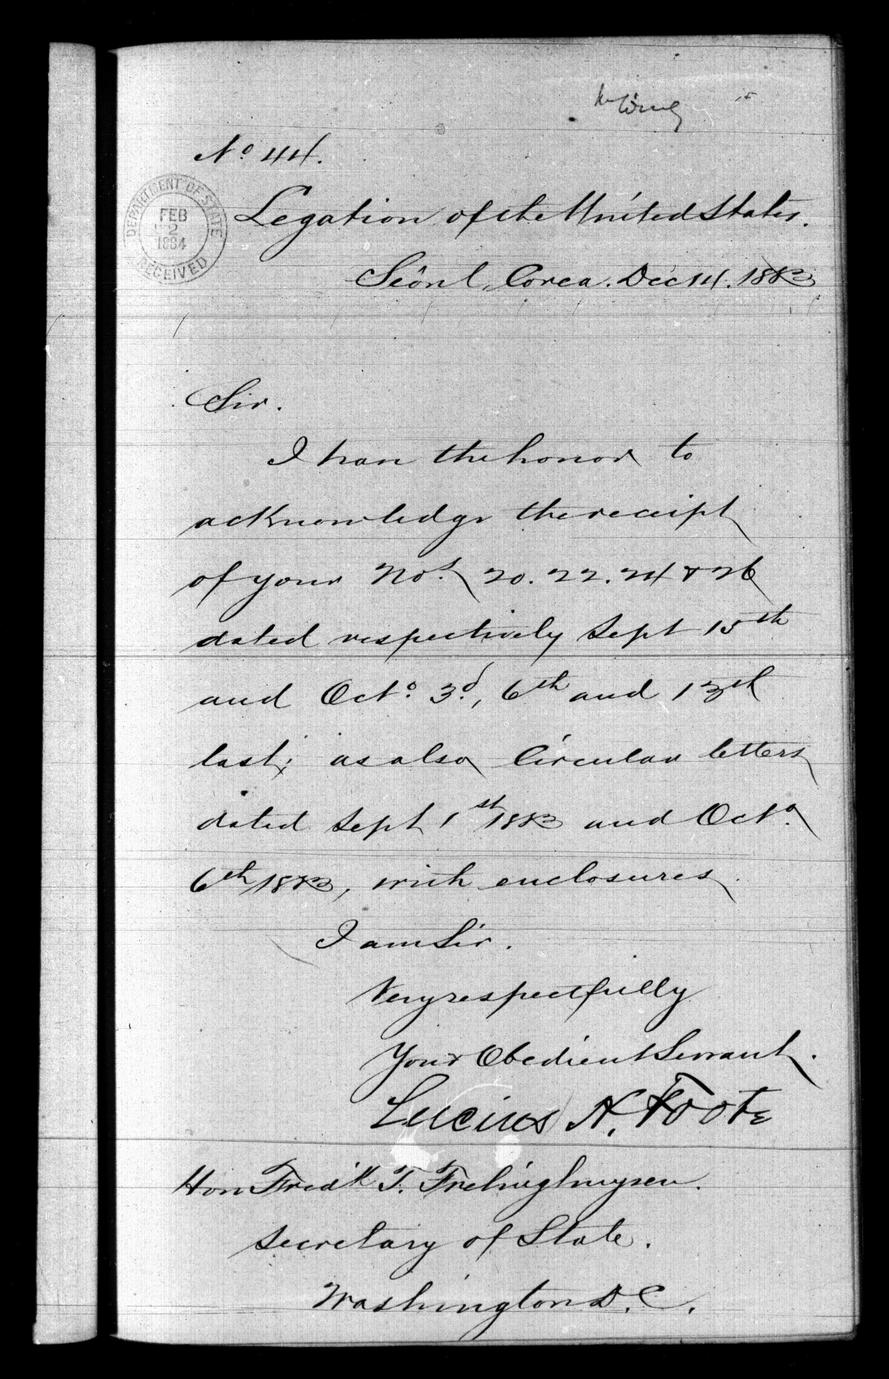 No 44.
DEPARTMENT OF STATE
FEB
2
1884
RECEIVED
Legation of the United States.
Séoul, Corea. Dec 14. 1883
Sir.
I have the honor to
acknowledge the receipt
of your Nos. 20. 22. 24 & 26
dated respectively Sept 15th
and Octo. 3d, 6th and 13th
last; as also Circular letters
dated Sept 1st 1883 and Octo.
6th 1883, with enclosures.
I am Sir.
Very respectfully
Your Obedient Servant.
Lucius H. Foote
Hon Fred'k T. Frelinghuysen.
Secretary of State.
Washington D.C.